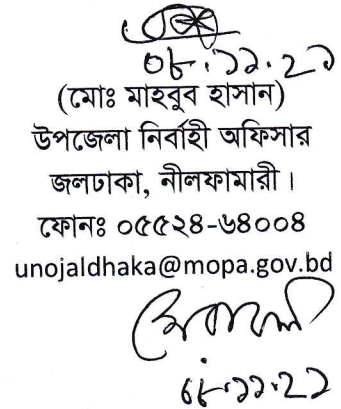 ০৮.১১.২১
(মোঃ মাহবুব হাসান)
উপজেলা নির্বাহী অফিসার
জলঢাকা, নীলফামারী।
ফোনঃ ০৫৫২৪-৬৪০০৪
unojaldhaka@mopa.gov.bd
০৮.১১.২১